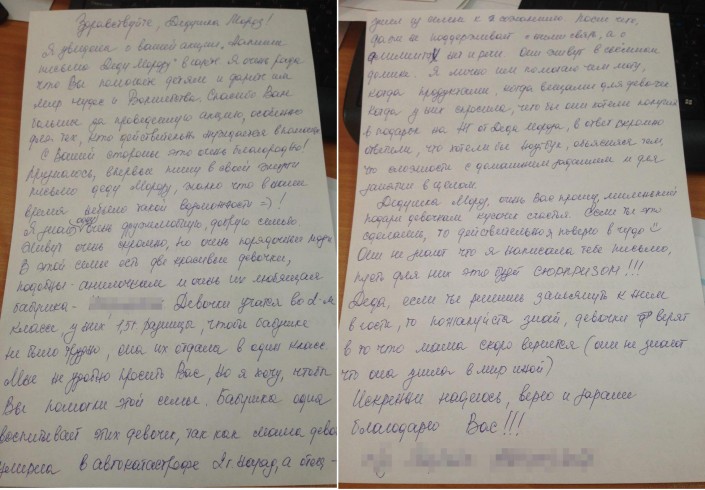 Здравствуйте, Дедушка Мороз!
Я узнала о вашей акции "Напиши
письмо Деду Морозу" Я очень рада
что Вы помогаете детям и дарите им
мир чудес и Волшебства. Спасибо Вам
большое за проведенную акцию, особенно
для тех, кто действительно нуждается в помощи
С Вашей стороны это очень благородно!
Признаюсь, впервые пишу в своей жизни
письмо деду Морозу, жалко что в наше
время не было такой возможности =)!
Я знаю одну очень дружелюбную, добрую семью.
Живут очень скромно, но очень порядочные люди
В этой семье есть две красивые девочки,
подобны ангелочкам и очень их любящая
бабушка - Девочки учатся во 2-м
классе, у них 1,5г. разница, чтобы бабушке
не было трудно, она их отдала в один класс.
Мне не удобно просить Вас, но я хочу, чтобы
Вы помогли этой семье. Бабушка одна
воспитывает этих девочек, так как мама дево
умерла в автокатастрофе 2г. назад, а отец -
ушел из семьи к сожалению. После чего,
он не поддерживает с ними связь, а о
алиментах нет и речи. Они живут в съемном
домике. Я лично им помогаю чем могу,
когда продуктами, когда вещами для девочек
Когда у них спросила, что бы они хотели получить
в подарок на НГ от Деда Мороза, в ответ скромно
ответили, что хотели бы ноутбук, объясняя тем,
что сложности с домашним заданием и для
занятий в целом.
Дедушка Мороз, очень Вас прошу, миленький
подари девочкам кусочек счастья. Если ты это
сделаешь, то действительно поверю в чудо
Они не знают что я написала тебе письмо,
пусть для них это будет сюрпризом!!!
Деда, если ты решишь заглянуть к ним
в гости, то пожалуйста знай, девочки верят
в то что мама скоро вернется (они не знают
что она ушла в мир иной)
Искренне надеюсь, верю и заранее
благодарю Вас!!!